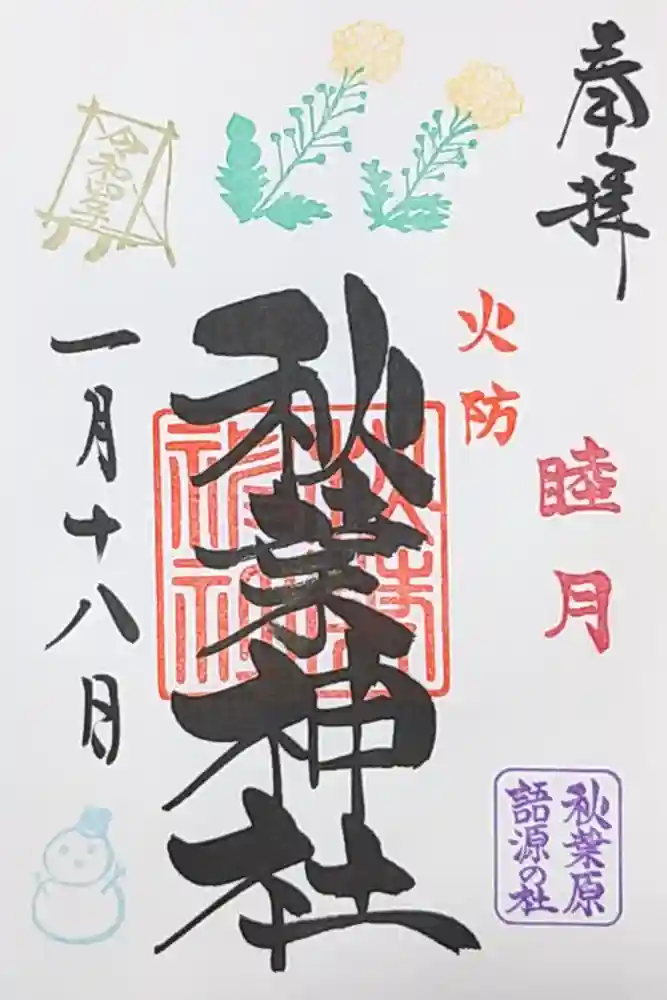 奉拝
睦月
秋葉原
語源の社
火防
秋葉神社
令和四年
一月十八日